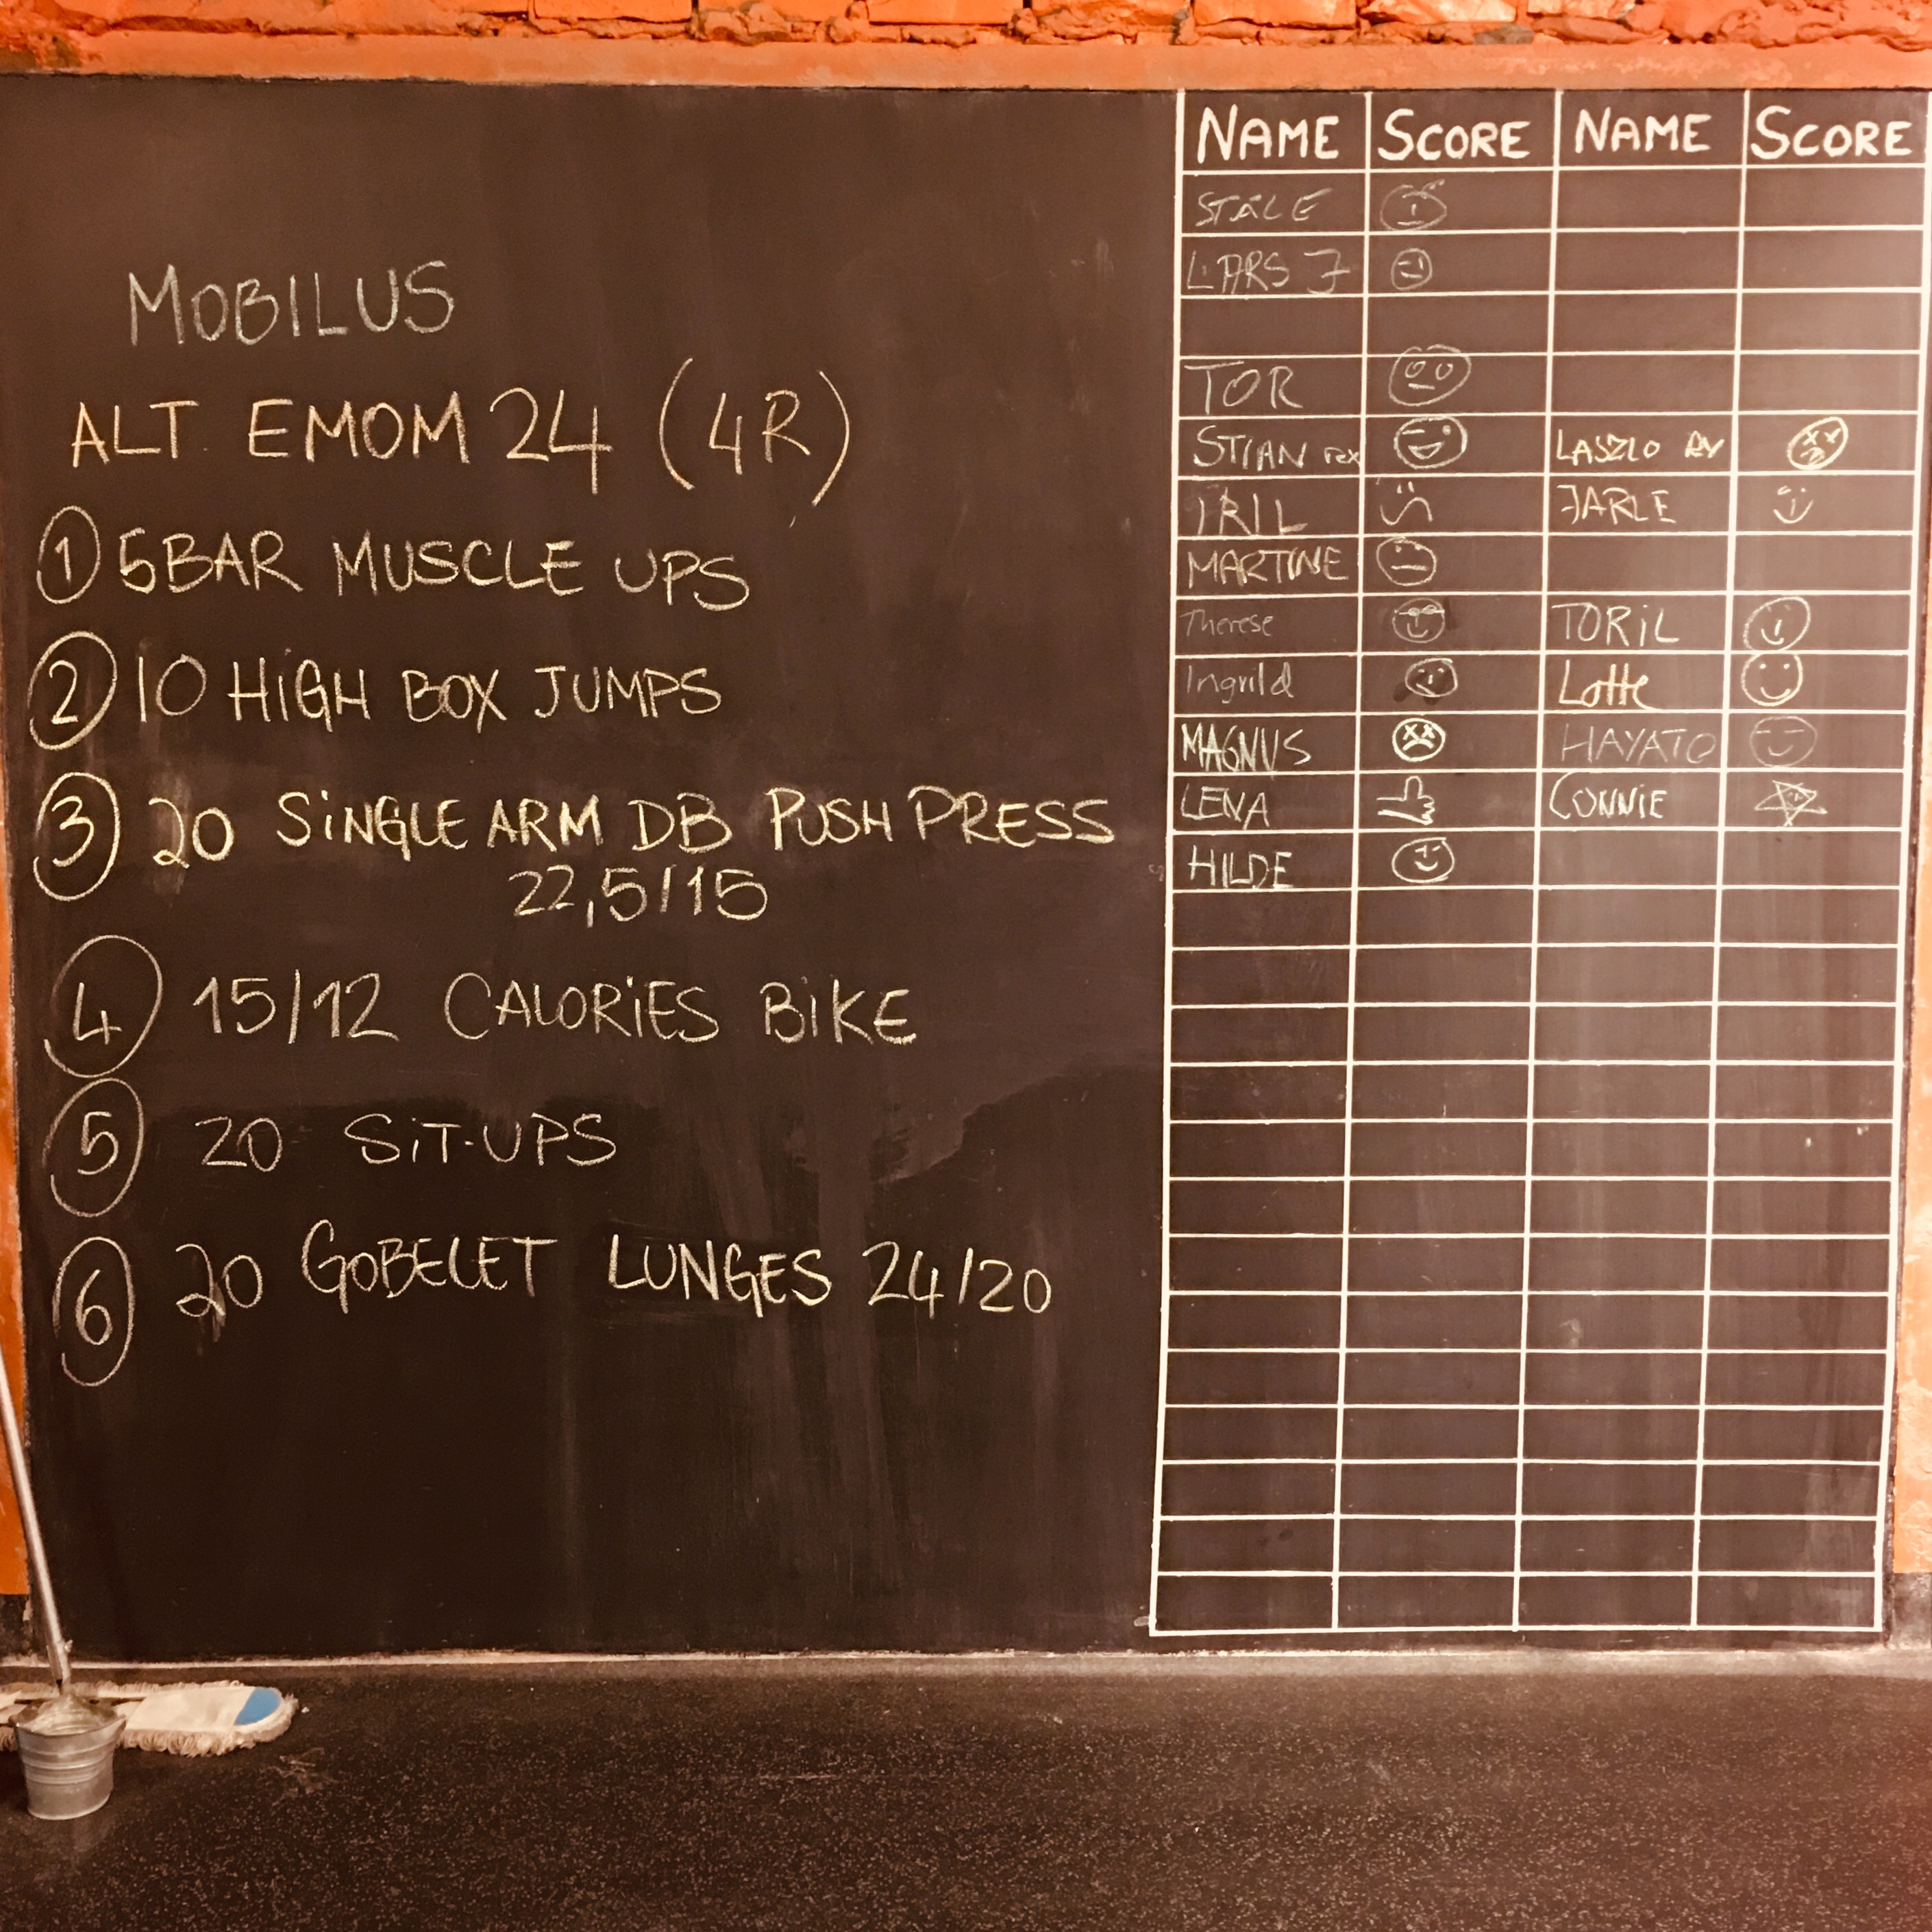 MOBILUS
ALT EMOM 24 (4R)
1 5 BAR MUSCLE UPS
2 10 HIGH BOX JUMPS
3 20 SINGLE ARM DB PUSH PRESS
22,5/15
4 15/12 CALORIES BIKE
5 20 SIT-UPS
6 20 GOBELET LUNGES 24/20
NAME SCORE NAME SCORE
STÅLE
LARS J
TOR
STIAN rx LASZLO RX
IRIL JARLE
MARTINE
Therese TORIL
Ingrild Lotte
MAGNUS HAYATO
LENA CONNIE
HILDE